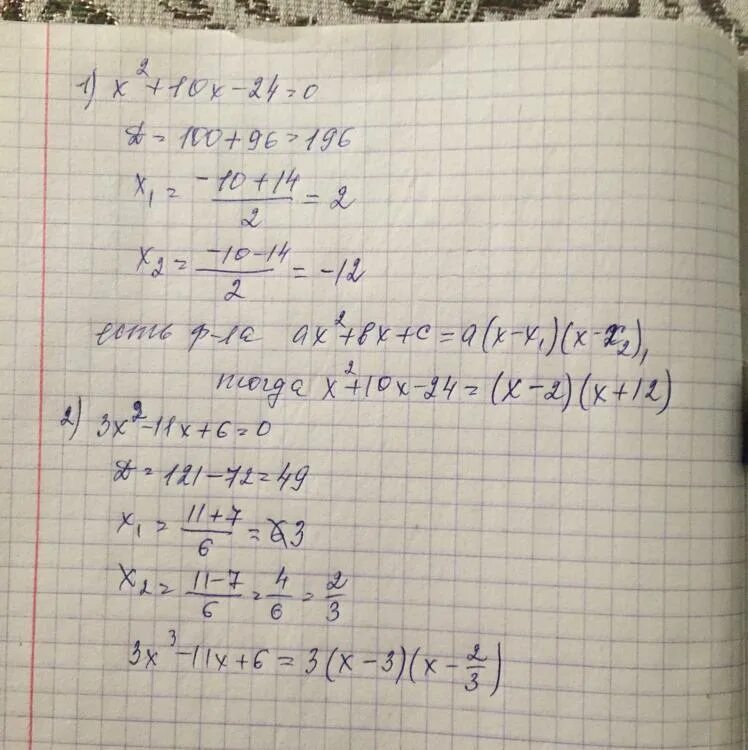 1) x² + 10x - 24 = 0
D = 100 + 96 = 196
x₁ = (-10 + 14)/2 = 2
x₂ = (-10 - 14)/2 = -12
есть ф-ла ax² + bx + c = a(x - x₁)(x - x₂),
тогда x² + 10x - 24 = (x - 2)(x + 12)
2) 3x² - 11x + 6 = 0
D = 121 - 72 = 49
x₁ = (11 + 7)/6 = 3
x₂ = (11 - 7)/6 = 4/6 = 2/3
3x³ - 11x + 6 = 3(x - 3)(x - 2/3)